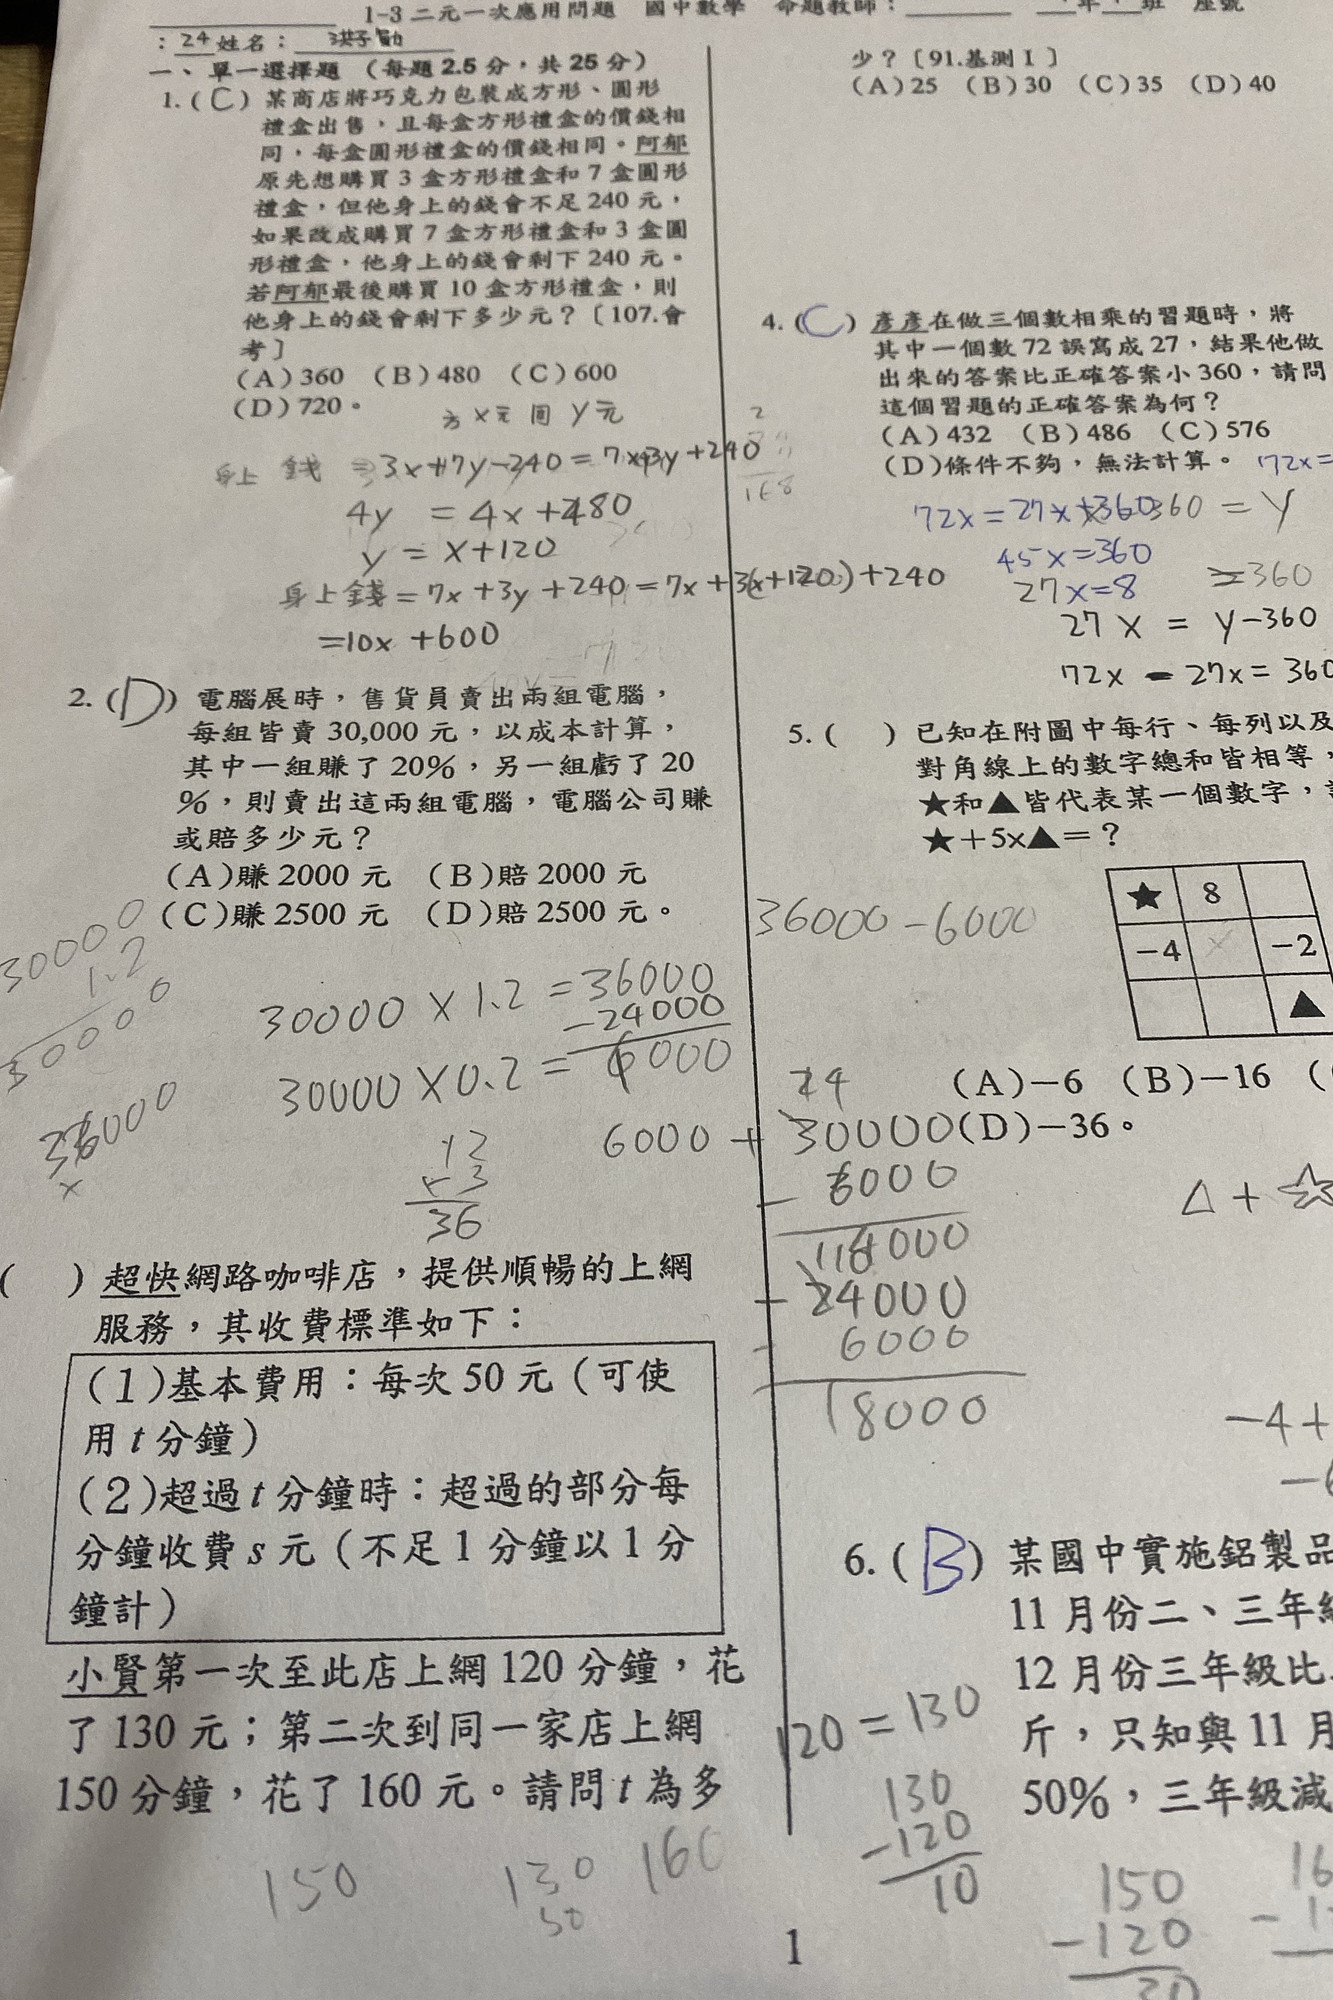 1-3 二元一次應用問題 國中數學 命題教師：＿＿＿ ＿年＿班 座號
：24 姓名：
一、單一選擇題 （每題 2.5 分，共 25 分）
1.（C）某商店將巧克力包裝成方形、圓形
禮盒出售，且每盒方形禮盒的價錢相
同，每盒圓形禮盒的價錢相同。阿郁
原先想購買 3 盒方形禮盒和 7 盒圓形
禮盒，但他身上的錢會不足 240 元，
如果改成購買 7 盒方形禮盒和 3 盒圓
形禮盒，他身上的錢會剩下 240 元。
若阿郁最後購買 10 盒方形禮盒，則
他身上的錢會剩下多少元？〔107.會
考〕
（A）360 （B）480 （C）600
（D）720。
方 x元 圓 y元
身上 錢 =3x+7y-240=7x+3y+240
4y = 4x+480
y = x+120
身上錢=7x+3y+240=7x+3(x+120)+240
=10x+600
2.（D）電腦展時，售貨員賣出兩組電腦，
每組皆賣 30,000 元，以成本計算，
其中一組賺了 20%，另一組虧了 20
%，則賣出這兩組電腦，電腦公司賺
或賠多少元？
（A）賺 2000 元 （B）賠 2000 元
（C）賺 2500 元 （D）賠 2500 元。
30000
1.2
30000 × 1.2 = 36000
-24000
30000 × 0.2 = 6000
36000
x
12
×3
36
（ ）超快網路咖啡店，提供順暢的上網
服務，其收費標準如下：
（1）基本費用：每次 50 元（可使
用 t 分鐘）
（2）超過 t 分鐘時：超過的部分每
分鐘收費 s 元（不足 1 分鐘以 1 分
鐘計）
小賢第一次至此店上網 120 分鐘，花
了 130 元；第二次到同一家店上網
150 分鐘，花了 160 元。請問 t 為多
150 130 160
50
少？〔91.基測 I 〕
（A）25 （B）30 （C）35 （D）40
4.（C）彥彥在做三個數相乘的習題時，將
其中一個數 72 誤寫成 27，結果他做
出來的答案比正確答案小 360，請問
這個習題的正確答案為何？
（A）432 （B）486 （C）576
（D）條件不夠，無法計算。 72x=
2
168
72x=27x+360 360 = y
45x=360
27x=8
=360
27x = y-360
72x - 27x = 360
5.（ ）已知在附圖中每行、每列以及
對角線上的數字總和皆相等，
★和▲皆代表某一個數字，
★+5x▲=？
★ 8
-4 x -2
▲
36000-6000
（A）-6 （B）-16 （
（D）-36。
24
6000 + 30000
- 6000
24000
- 6000
18000
△ + ☆
-4+
6.（B）某國中實施鋁製品
11 月份二、三年級
12 月份三年級比
斤，只知與 11 月
50%，三年級減
120=130
130
-120
10
150
-120
30
1